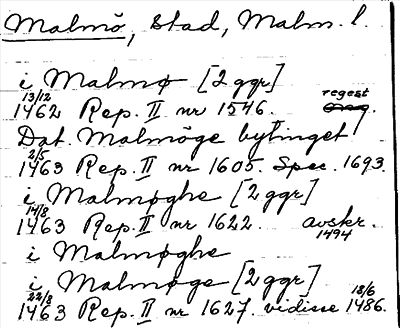 Malmö, stad, Malm. l.
i Malmø [2 ggr]
13/12
1462 Rep. II nr 1546. regest
Dat. Malmöge bytinget
2/5
1463 Rep. II nr 1605. Spec. 1693.
i Malmøghe [2 ggr]
14/8
1463 Rep. II nr 1622. avskr.
1494
i Malmøghe
i Malmøge [2 ggr]
22/8 18/6
1463 Rep. II nr 1627. vidisse 1486.